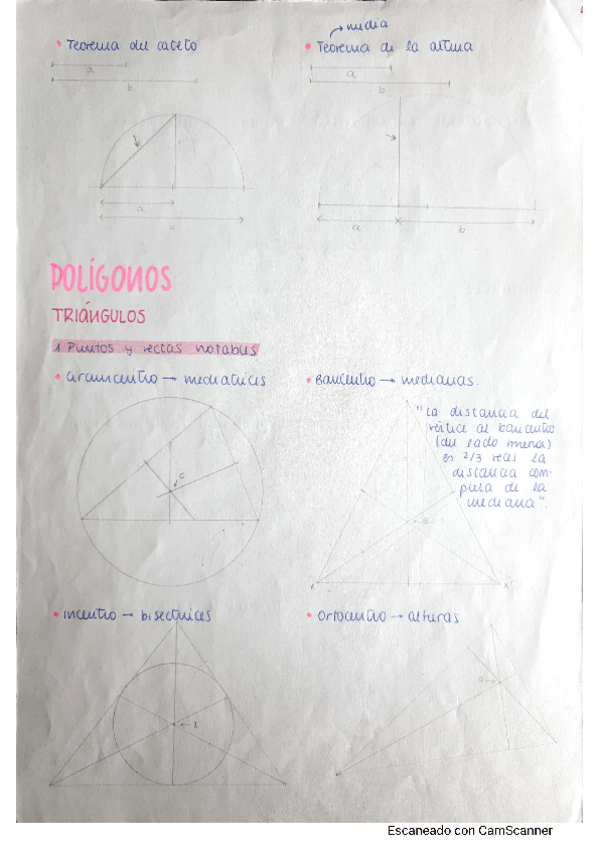 • Teorema del cateto
→ media
• Teorema de la altura
a
b
a
b
a
b
a
b
POLÍGONOS
TRIÁNGULOS
1 Puntos y rectas notables
• circuncentro → mediatrices
• Baricentro → medianas.
C
"La distancia del
vértice al baricentro
(del lado menor)
es 2/3 veces la
distancia com-
pleta de la
mediana".
B
• incentro → bisectrices
• ortocentro → alturas
I
O
Escaneado con CamScanner